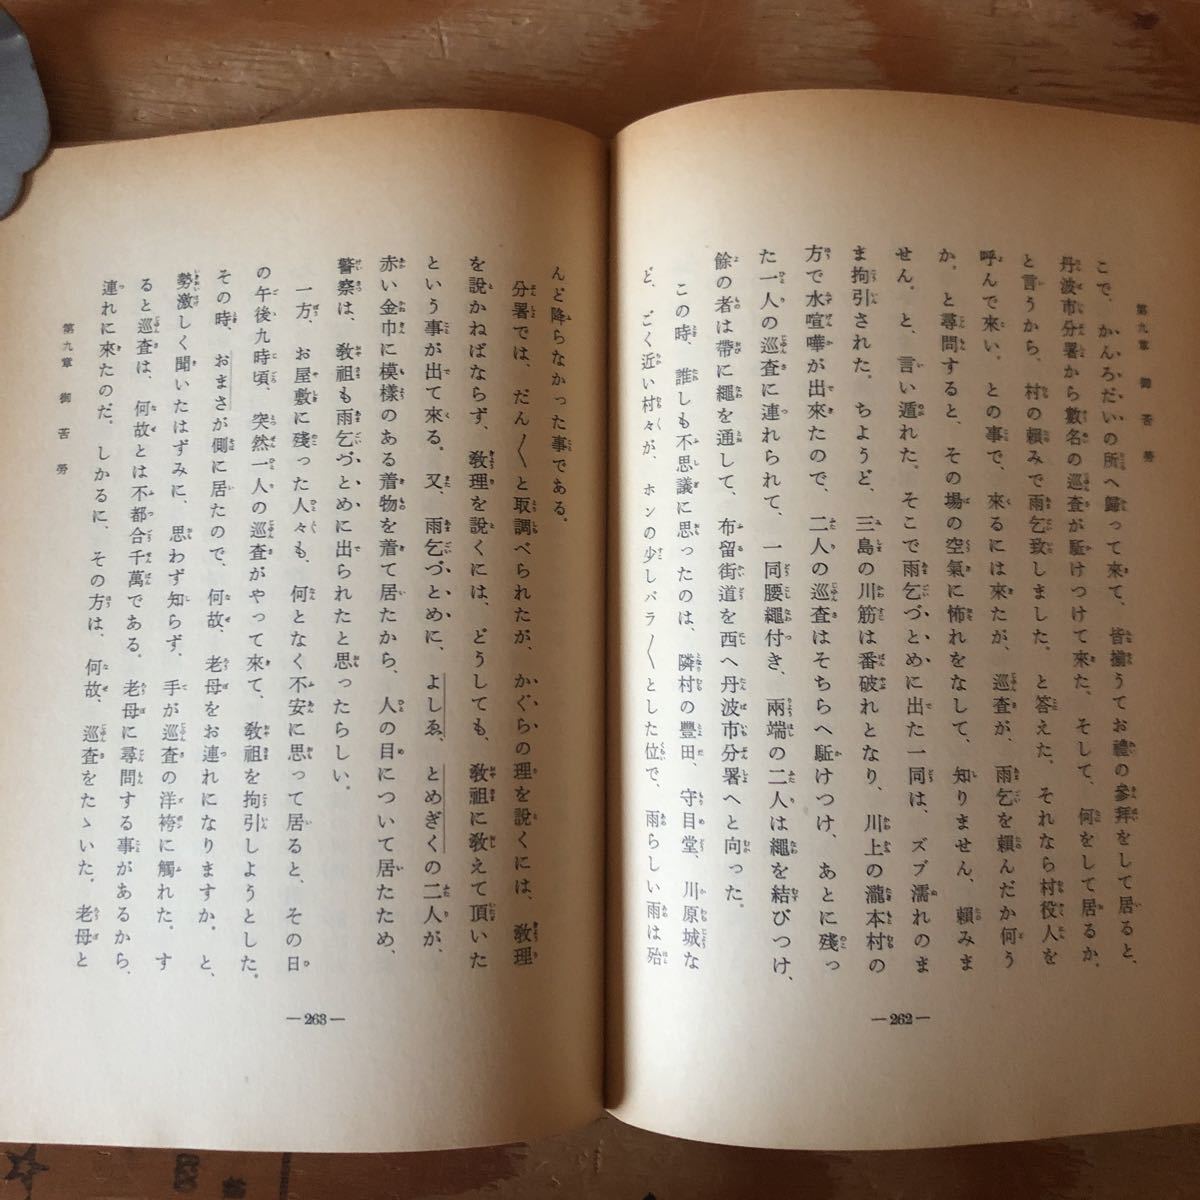 第九章　御苦勞
こで、かんろだいの所へ歸って來て、皆揃うてお禮の參拜をして居ると、
丹波市分署から數名の巡査が駈けつけて來た。そして、何をして居るか、
と言うから、村の賴みで雨乞致しました。と答えた。それなら村役人を
呼んで來い。との事で、來るには來たが、巡査が、雨乞を賴んだか何う
か。と尋問すると、その場の空氣に怖れをなして、知りません、賴みま
せん。と、言い遁れた。そこで雨乞づとめに出た一同は、ズブ濡れのま
ま拘引された。ちようど、三島の川筋は番破れとなり、川上の瀧本村の
方で水喧嘩が出來たので、二人の巡査はそちらへ駈けつけ、あとに殘っ
た一人の巡査に連れられて、一同腰繩付き、兩端の二人は繩を結びつけ、
餘の者は帶に繩を通して、布留街道を西へ丹波市分署へと向った。
この時、誰しも不思議に思ったのは、隣村の豐田、守目堂、川原城な
ど、ごく近い村々が、ホンの少しバラ〱とした位で、雨らしい雨は殆
—262—
んど降らなかった事である。
分署では、だん〱と取調べられたが、かぐらの理を說くには、敎理
を說かねばならず、敎理を說くには、どうしても、敎祖に敎えて頂いた
という事が出て來る。又、雨乞づとめに、よしゑ、とめぎくの二人が、
赤い金巾に模樣のある着物を着て居たから、人の目について居たため、
警察は、敎祖も雨乞づとめに出られたと思ったらしい。
一方、お屋敷に殘った人々も、何となく不安に思って居ると、その日
の午後九時頃、突然一人の巡査がやって來て、敎祖を拘引しようとした。
その時、おまさが側に居たので、何故、老母をお連れになりますか。と、
勢激しく聞いたはずみに、思わず知らず、手が巡査の洋袴に觸れた。す
ると巡査は、何故とは不都合千萬である。老母に尋問する事があるから、
連れに來たのだ。しかるに、その方は、何故、巡査をたゝいた。老母と
第九章　御苦勞
—263—